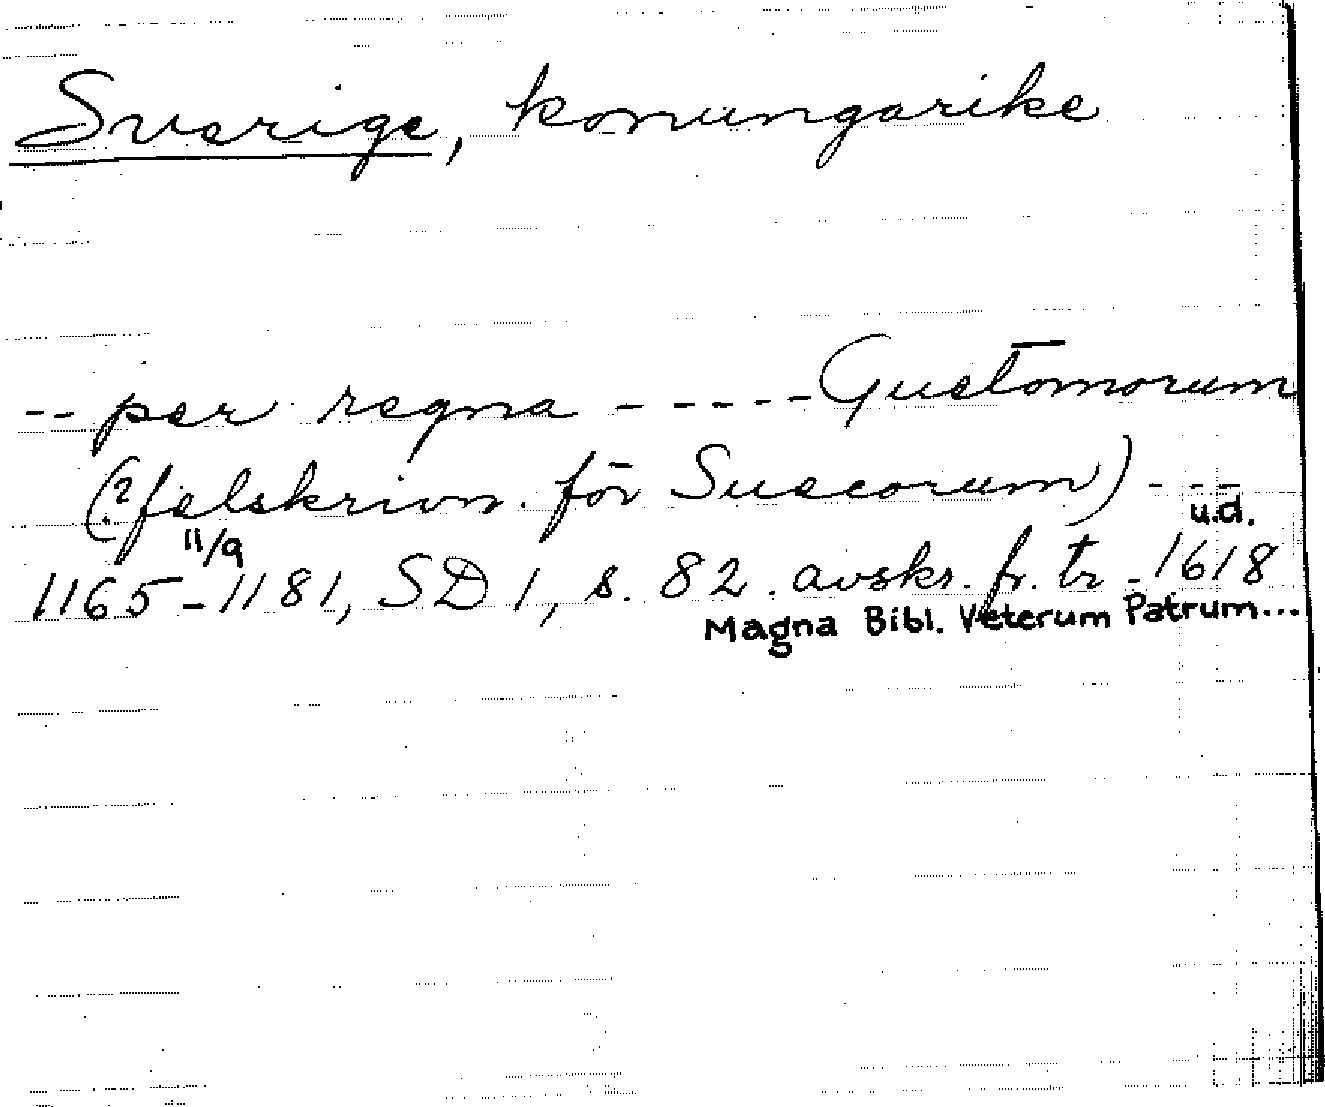 Sverige, konungarike
-- per regna ----- Guetomorum
(? felskrivn. för Sueeorum) ---
11/9 u.d.
1165-1181, SD 1, s. 82. avskr. fr. tr. 1618
Magna Bibl. Veterum Patrum...